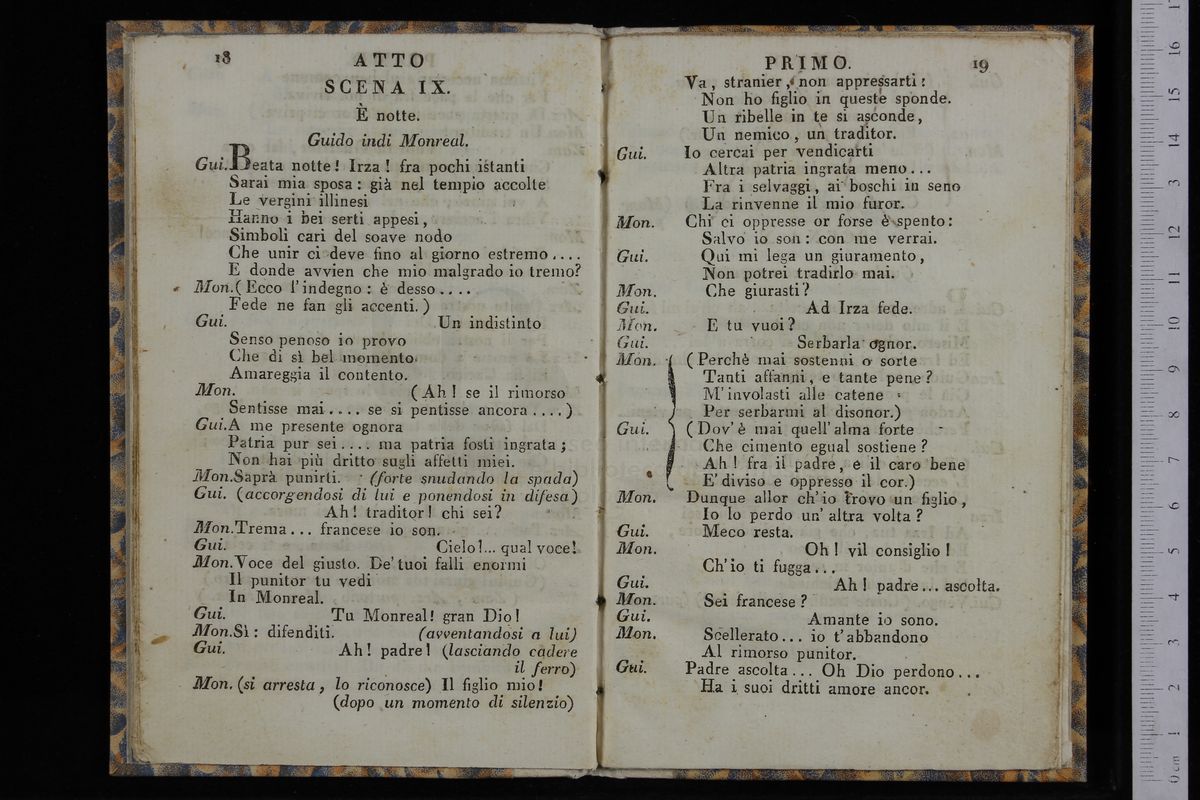 18
ATTO
SCENA IX.
È notte.
Guido indi Monreal.
Gui. Beata notte! Irza! fra pochi istanti
Sarai mia sposa: già nel tempio accolte
Le vergini illinesi
Hanno i bei serti appesi,
Simboli cari del soave nodo
Che unir ci deve fino al giorno estremo....
E donde avvien che mio malgrado io tremo?
Mon.(Ecco l'indegno: è desso.....
Fede ne fan gli accenti.)
Gui. Un indistinto
Senso penoso io provo
Che di sì bel momento
Amareggia il contento.
Mon. (Ah! se il rimorso
Sentisse mai.... se si pentisse ancora....)
Gui.A me presente ognora
Patria pur sei.... ma patria fosti ingrata;
Non hai più dritto sugli affetti miei.
Mon.Saprà punirti. (forte snudando la spada)
Gui. (accorgendosi di lui e ponendosi in difesa)
Ah! traditor! chi sei?
Mon.Trema... francese io son.
Gui. Cielo!... qual voce!
Mon.Voce del giusto. De' tuoi falli enormi
Il punitor tu vedi
In Monreal.
Gui. Tu Monreal! gran Dio!
Mon.Sì: difenditi. (avventandosi a lui)
Gui. Ah! padre! (lasciando cadere
il ferro)
Mon. (si arresta, lo riconosce) Il figlio mio!
(dopo un momento di silenzio)
PRIMO. 19
Va, stranier, non appressarti:
Non ho figlio in queste sponde.
Un ribelle in te si asconde,
Un nemico, un traditor.
Gui. Io cercai per vendicarti
Altra patria ingrata meno...
Fra i selvaggi, ai boschi in seno
La rinvenne il mio furor.
Mon. Chi ci oppresse or forse è spento:
Salvo io son: con me verrai.
Gui. Qui mi lega un giuramento,
Non potrei tradirlo mai.
Mon. Che giurasti?
Gui. Ad Irza fede.
Mon. E tu vuoi?
Gui. Serbarla ognor.
Mon. (Perchè mai sostenni o sorte
Tanti affanni, e tante pene?
M'involasti alle catene
Per serbarmi al disonor.)
Gui. (Dov'è mai quell'alma forte
Che cimento egual sostiene?
Ah! fra il padre, e il caro bene
E' diviso e oppresso il cor.)
Mon. Dunque allor ch'io trovo un figlio,
Io lo perdo un' altra volta?
Gui. Meco resta.
Mon. Oh! vil consiglio!
Ch'io ti fugga...
Gui. Ah! padre... ascolta.
Mon. Sei francese?
Gui. Amante io sono.
Mon. Scellerato... io t'abbandono
Al rimorso punitor.
Gui. Padre ascolta... Oh Dio perdono...
Ha i suoi dritti amore ancor.
0cm 1 2 3 4 5 6 7 8 9 10 11 12 13 14 15 16 17